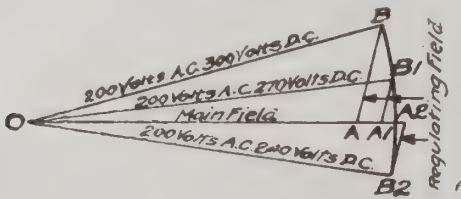 B
200 Volts A.C. 300 Volts D.C.
B1
200 Volts A.C. 270 Volts D.C.
Main Field
O
A
A1
A2
200 Volts A.C. 240 Volts D.C.
B2
Regulating Field